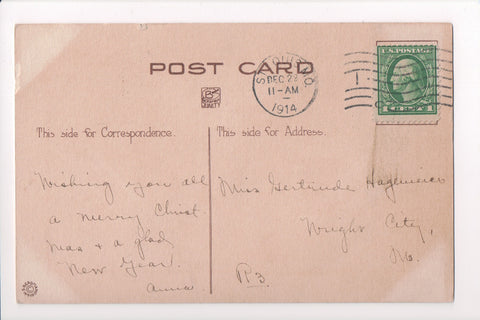 POST CARD
ST. LOUIS, MO.
DEC 22
11-AM
1914
U.S. POSTAGE
This side for Correspondence.
This side for Address.
Wishing you all
a merry Christ-
mas & a glad
New Year.
Anna.
Miss Gertrude
Wright City,
Mo.
R3.